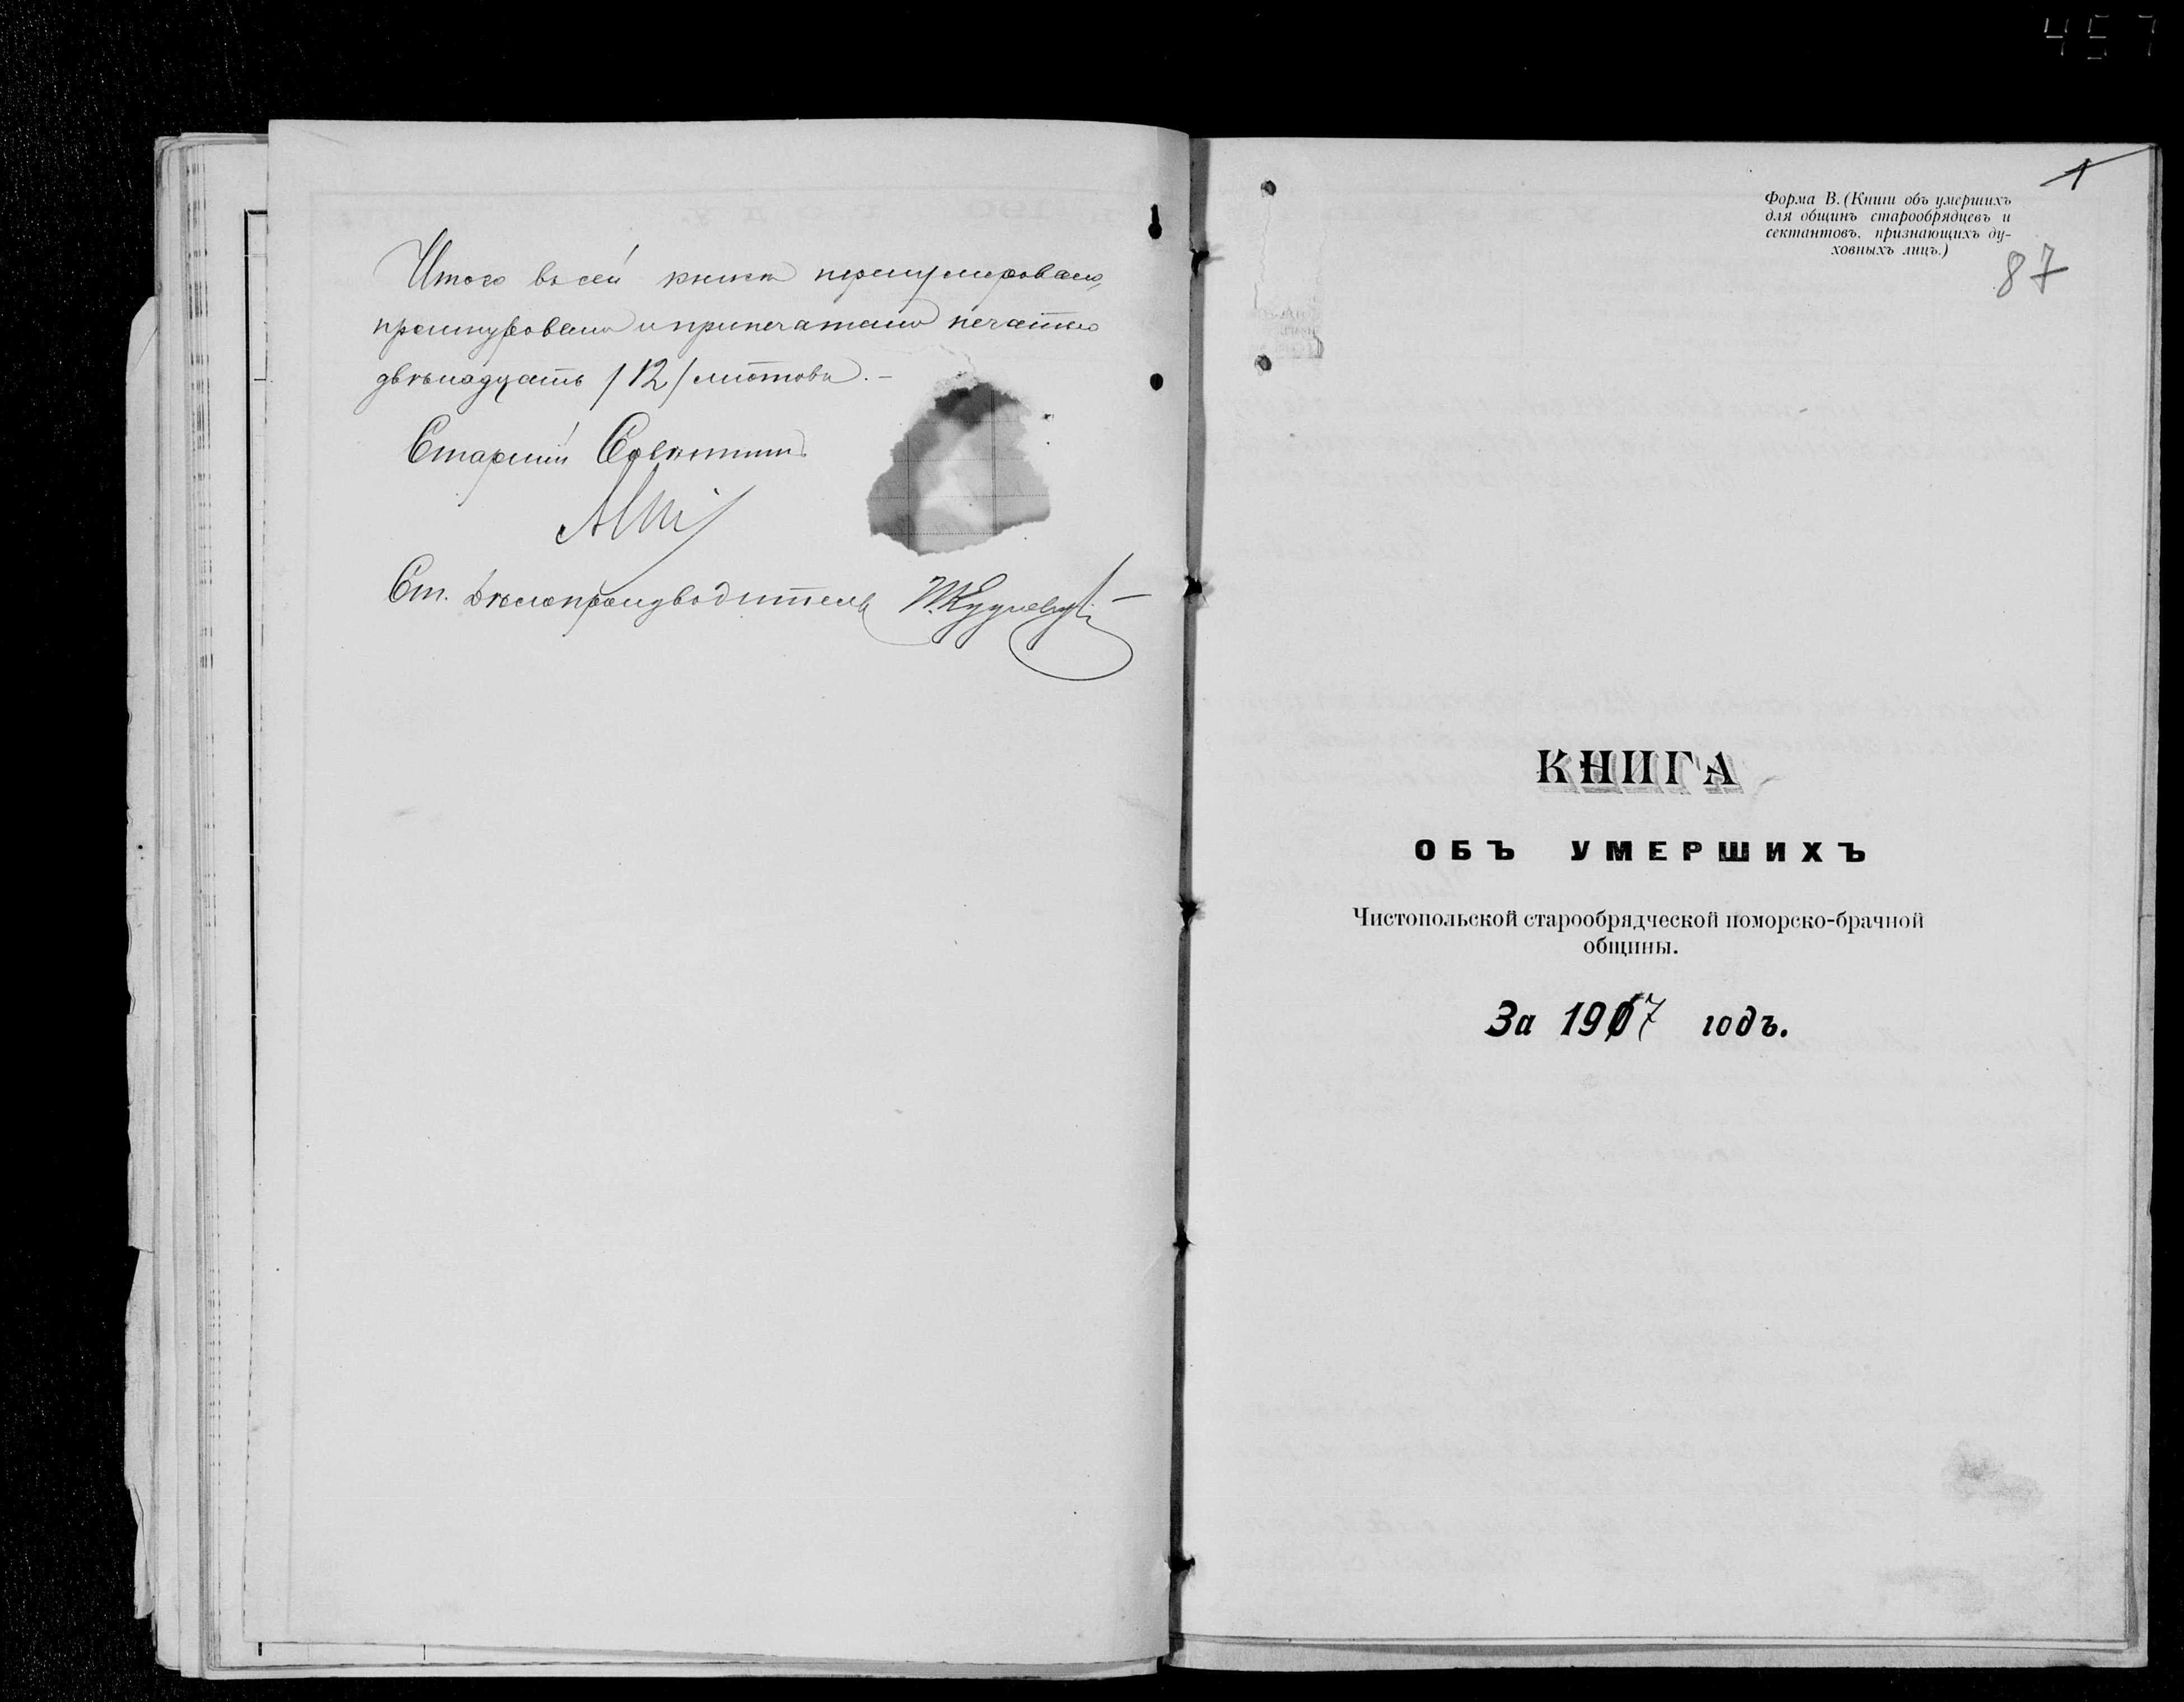 Итого въ сей книгѣ пронумеровано,
прошнуровано и припечатано печатью
двѣнадцать /12/ листовъ. –
Старшій Совѣтникъ
Ст. Дѣлопроизводитель
457
1
Форма В. (Книги объ умершихъ
для общинъ старообрядцевъ и
сектантовъ, признающихъ ду-
ховныхъ лицъ.)
87
КНИГА
ОБЪ УМЕРШИХЪ
Чистопольской старообрядческой поморско-брачной
общины.
За 1917 годъ.